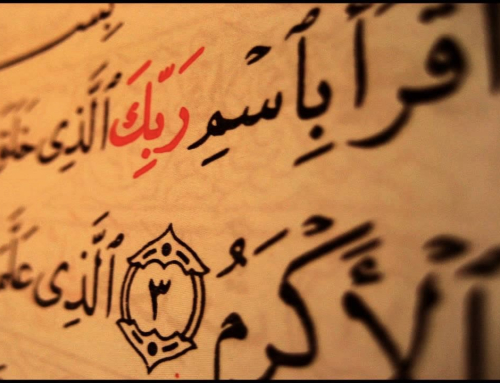 بِسْ
ٱقْرَأْ بِٱسْمِ رَبِّكَ ٱلَّذِى خَلَقَ
ٱلْأَكْرَمُ ٣ ٱلَّذِى عَلَّمَ